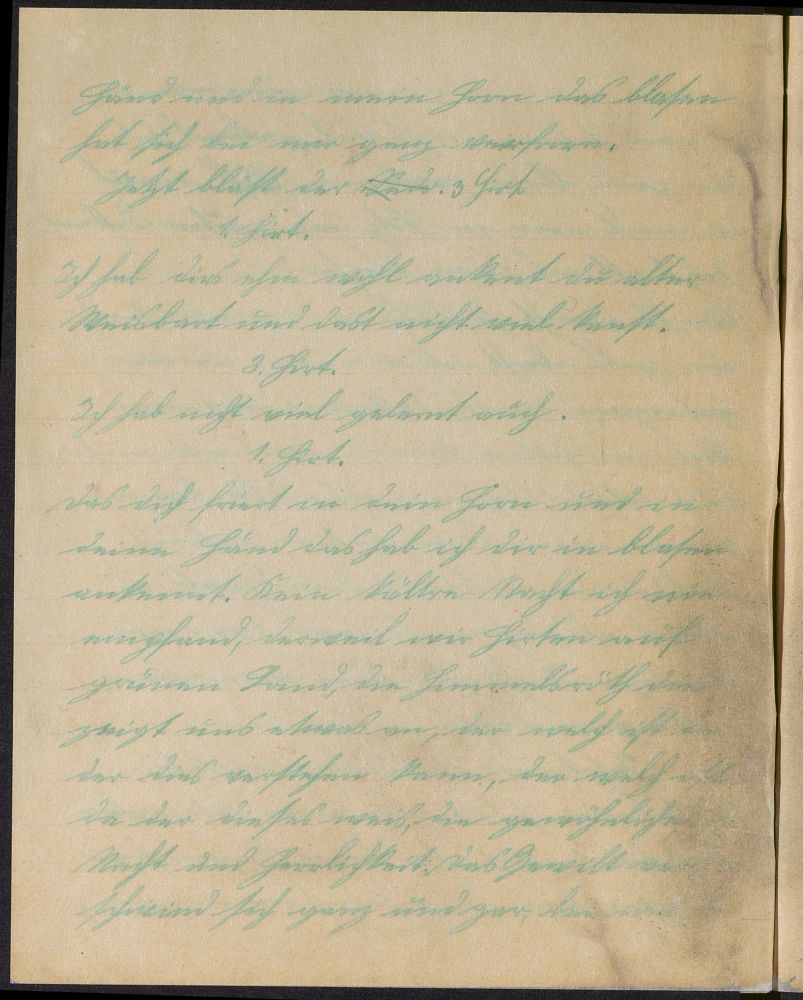 Händ und in mein Horn das blasen
hat sich bei mir ganz verfroren.
Jetzt bläst der 3 Hirt
1. Hirt.
Ich hab dirs ehm wohl ankent du alter
Weisbart und dast nicht viel kanst.
3. Hirt.
Ich hab nicht viel gelernt auch.
1. Hirt.
Das dich friert in dein Horn und in
deine Händ das hab ich dir in blasen
ankennt. Kein kältre Nacht ich nie
empfand, derweil wir Hirten auf
grünen Land, die Himmelsröth die
zeigt uns etwas an, der welch ist
der dies verstehen kann, der welch ist
da der dieses weis, die gewöhnliche
Nacht und Herrlichkeit. Das Gewilt
schwind sich ganz und gar, bei